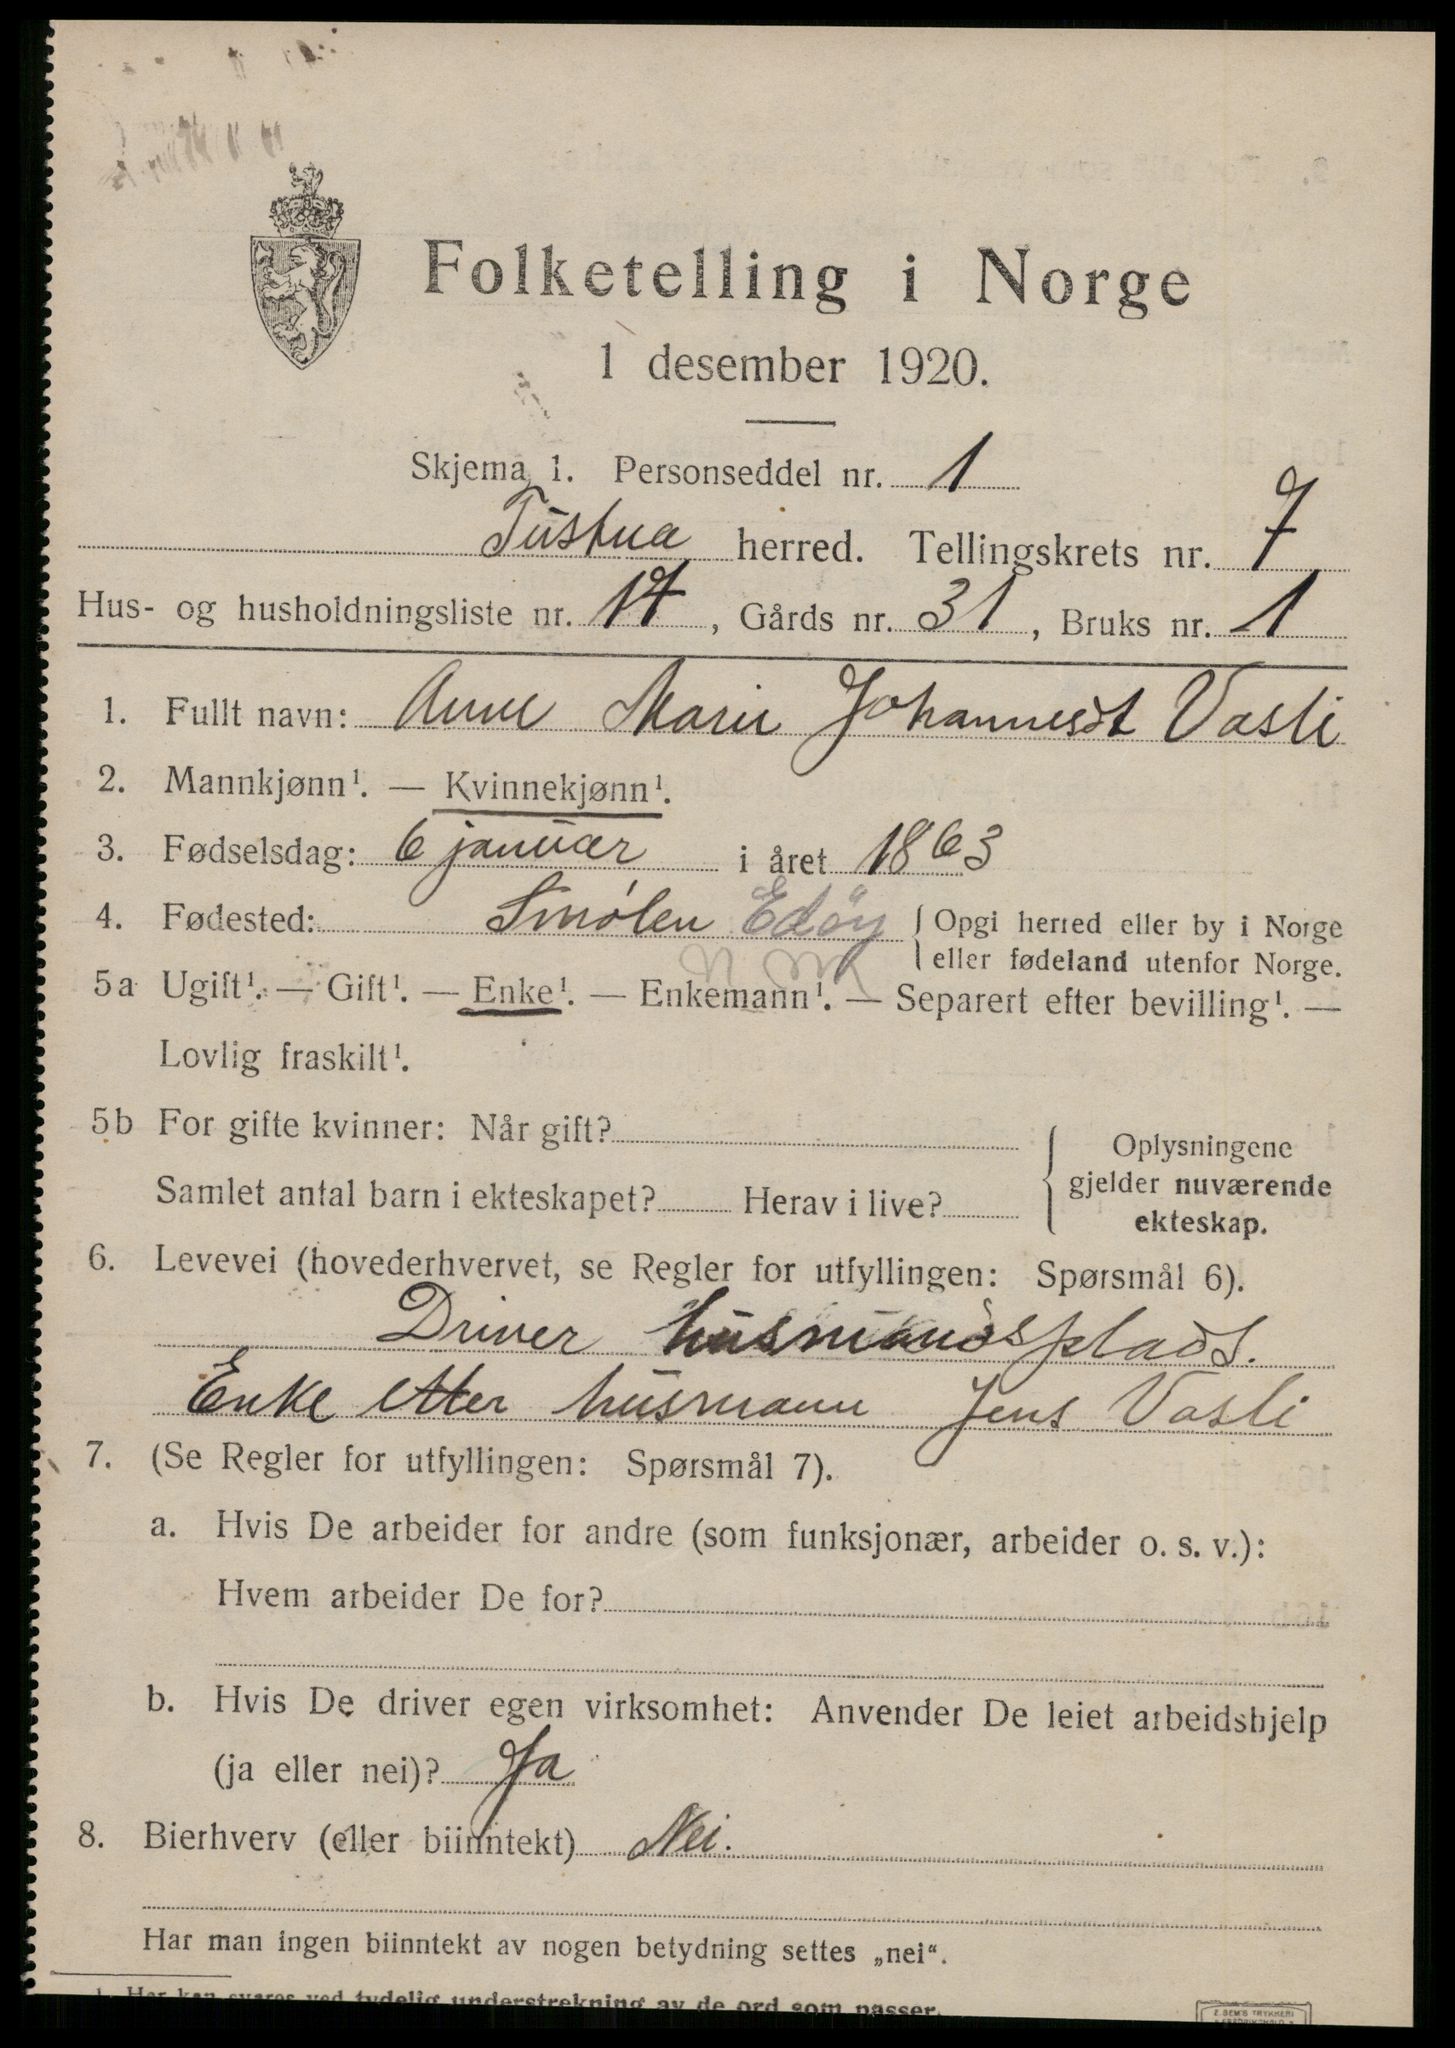 Folketelling i Norge
1 desember 1920.
Skjema 1. Personseddel nr. 1
Tustna herred. Tellingskrets nr. 7
Hus- og husholdningsliste nr. 17, Gårds nr. 31, Bruks nr. 1
1. Fullt navn: Anne Marie Johannesdt Vasli
2. Mannkjønn¹. — Kvinnekjønn¹.
3. Fødselsdag: 6 januar i året 1863
4. Fødested: Smølen Edöy { Opgi herred eller by i Norge
eller fødeland utenfor Norge.
5a Ugift¹. — Gift¹. — Enke¹. — Enkemann¹. — Separert efter bevilling¹. —
Lovlig fraskilt¹.
5b For gifte kvinner: Når gift? { Oplysningene
gjelder nuværende
ekteskap.
Samlet antal barn i ekteskapet? Herav i live?
6. Levevei (hovederhvervet, se Regler for utfyllingen: Spørsmål 6).
Driver husmandsplads.
Enke etter husmann Jens Vasli
7. (Se Regler for utfyllingen: Spørsmål 7).
a. Hvis De arbeider for andre (som funksjonær, arbeider o. s. v.):
Hvem arbeider De for?
b. Hvis De driver egen virksomhet: Anvender De leiet arbeidshjelp
(ja eller nei)? Ja
8. Bierhverv (eller biinntekt) Nei.
Har man ingen biinntekt av nogen betydning settes „nei“.
1. Her kan svares ved tydelig understrekning av de ord som passer.